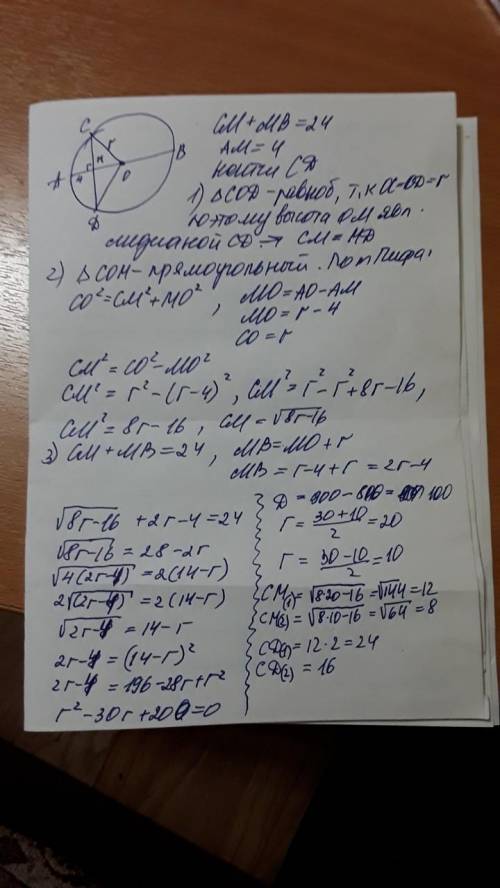 C
r
M
B
O
A
4
D
CM + MB = 24
AM = 4
найти CD
1) △COD - равноб, т.к OC=OD=r
поэтому высота OM явл.
медианой CD → CM = MD
2) △COM - прямоугольный. По т Пифа:
CO² = CM² + MO² , MO = AO - AM
MO = r - 4
CO = r
CM² = CO² - MO²
CM² = r² - (r-4)², CM² = r² - r² + 8r - 16,
CM² = 8r - 16 , CM = √8r-16
3) CM + MB = 24 , MB = MO + r
MB = r - 4 + r = 2r - 4
√8r-16 + 2r - 4 = 24
√8r-16 = 28 - 2r
√4(2r-4) = 2(14-r)
2√(2r-4) = 2(14-r)
√2r-4 = 14 - r
2r - 4 = (14-r)²
2r - 4 = 196 - 28r + r²
r² - 30r + 200 = 0
D = 900 - 800 = 100
r = 30+10/2 = 20
r = 30-10/2 = 10
CM(1) = √8·20-16 = √144 = 12
CM(2) = √8·10-16 = √64 = 8
CD(1) = 12·2 = 24
CD(2) = 16